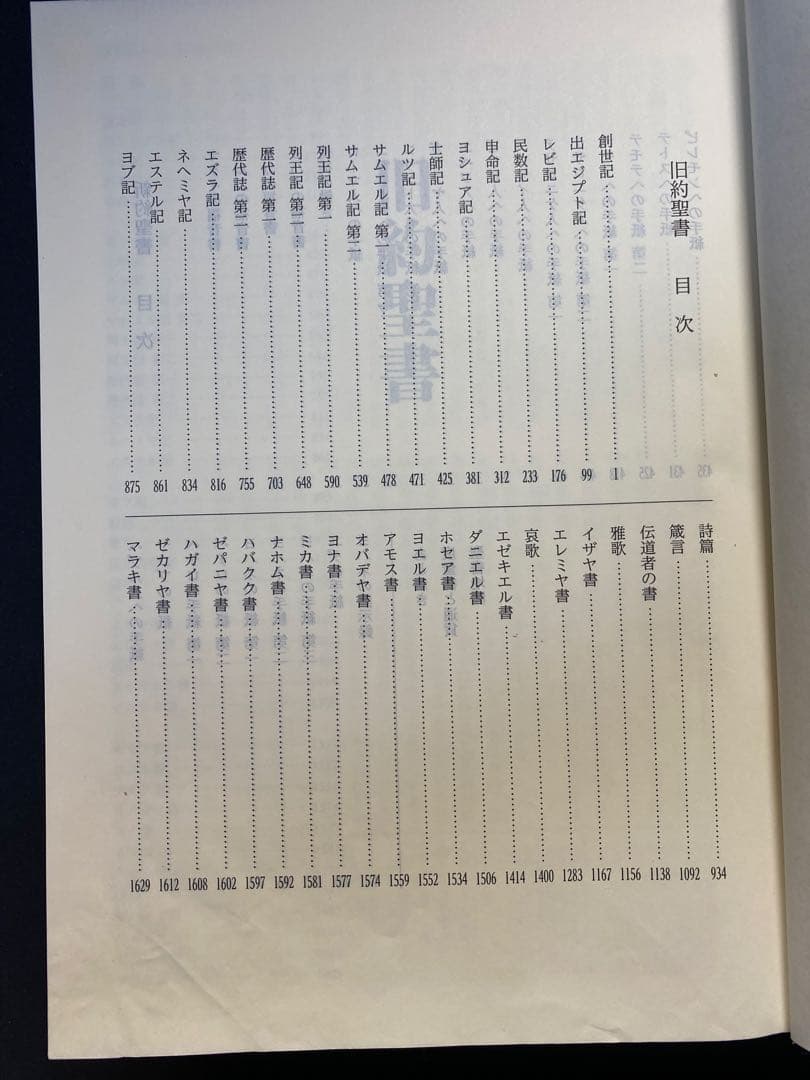 旧約聖書 目次
創世記 1
出エジプト記 99
レビ記 176
民数記 233
申命記 312
ヨシュア記 381
士師記 425
ルツ記 471
サムエル記 第一 478
サムエル記 第二 539
列王記 第一 590
列王記 第二 648
歴代誌 第一 703
歴代誌 第二 755
エズラ記 816
ネヘミヤ記 834
エステル記 861
ヨブ記 875
詩篇 934
箴言 1092
伝道者の書 1138
雅歌 1156
イザヤ書 1167
エレミヤ書 1283
哀歌 1400
エゼキエル書 1414
ダニエル書 1506
ホセア書 1534
ヨエル書 1552
アモス書 1559
オバデヤ書 1574
ヨナ書 1577
ミカ書 1581
ナホム書 1592
ハバクク書 1597
ゼパニヤ書 1602
ハガイ書 1608
ゼカリヤ書 1612
マラキ書 1629